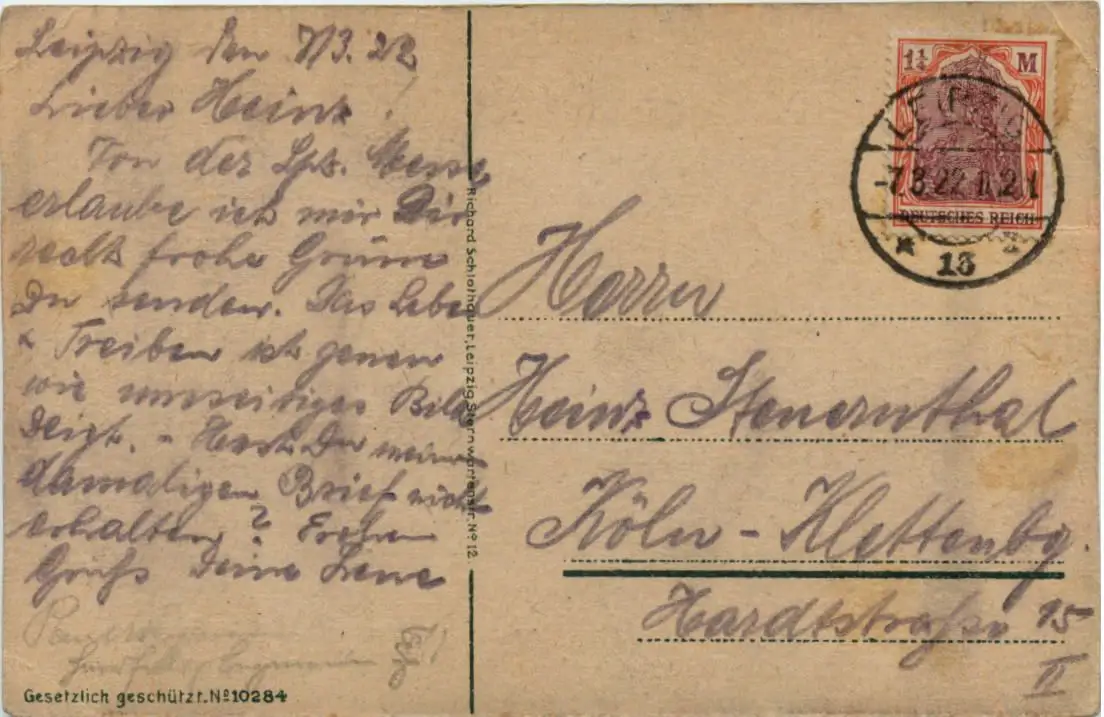 Leipzig den 7/3.22
Lieber Heinz!
Von der Lpz. Messe
erlaube ich mir Dir
recht frohe Grüsse
zu senden. Das Leben
+ Treiben ist genau
wie umseitiges Bild
zeigt. - Hast Du meinen
damaligen Brief nicht
erhalten? Frohen
Gruß Deine Lene
Gesetzlich geschützt. No 10284
Richard Schlothauer, Leipzig Sternwartenstr. No 12.
1¼ M
DEUTSCHES REICH
LEIPZIG
-7.3.22.
* 13 *
Herrn
Heinz Sternenthal
Köln - Klettenbg.
Hardtstraße 15
II